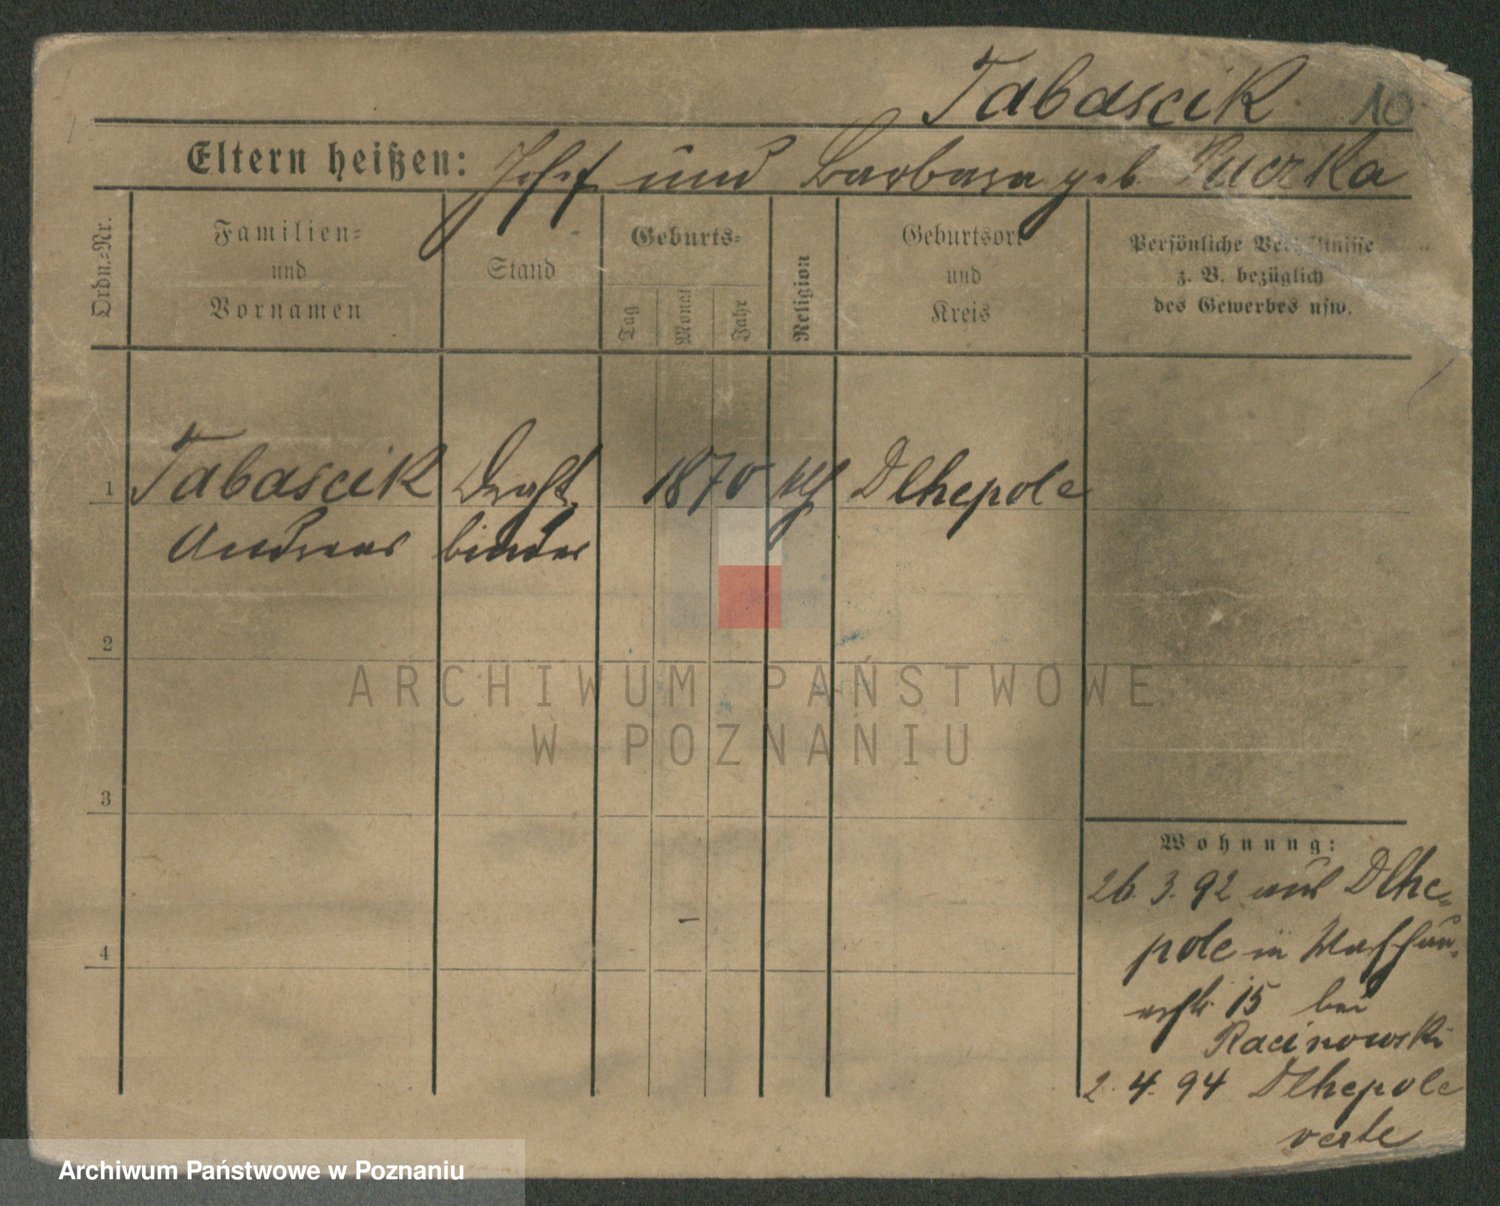 Tabascik 10
Eltern heißen: Josef und Barbara geb. Puczka
Ordn.-Nr.
Familien-
und
Vornamen
Stand
Geburts-
Tag
Monat
Jahr
Religion
Geburtsort
und
Kreis
Persönliche Verhältnisse
z. B. bezüglich
des Gewerbes usw.
1
Tabascik Draht
1870
Dlhepole
Andreas binder
2
ARCHIWUM PAŃSTWOWE
W POZNANIU
3
4
Wohnung:
26. 3. 92 aus Dlhe-
pole in
15 bei
Racinowski
2. 4. 94 Dlhepole
verte
Archiwum Państwowe w Poznaniu